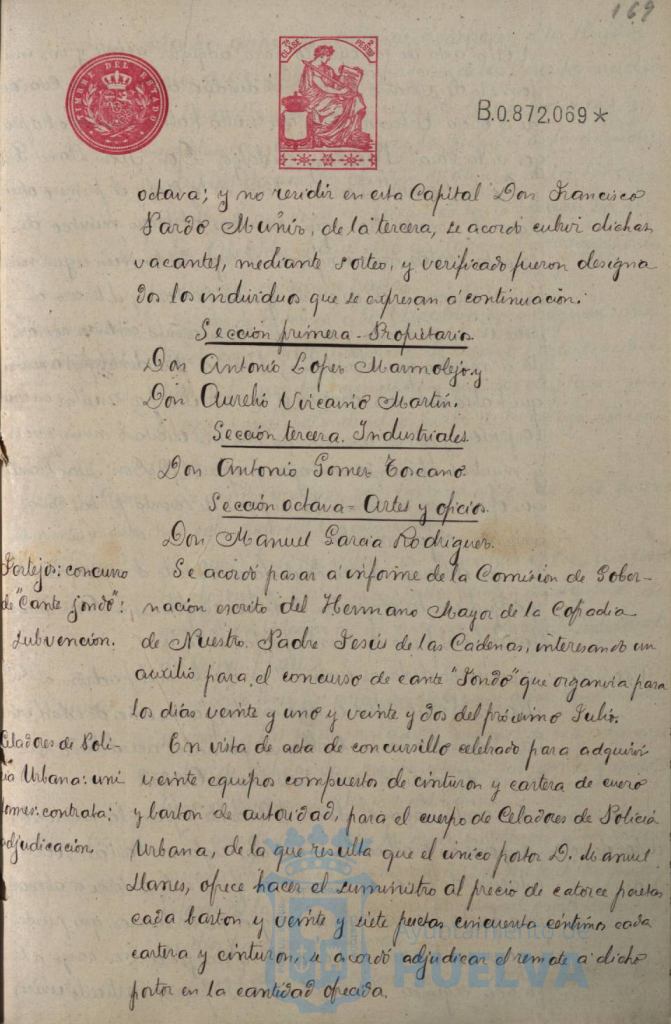 169
TIMBRE DEL ESTADO
7ª CLASE
PESETA
B.0.872,069*
octava; y no residir en esta Capital Don Francisco
Pardo Muñis, de la tercera, se acordó cubrir dichas
vacantes, mediante sorteo, y verificado fueron designa
dos los individuos que se expresan á continuación.
Sección primera - Propietarios
Don Antonio Lopes Marmolejo y
Don Aurelio Viscaino Martin.
Sección tercera. Industriales.
Don Antonio Gomes Toscano.
Sección octava = Artes y oficios.
Don Manuel Garcia Rodrigues.
Festejos: concurso
de "Cante jondo":
subvención.
Se acordó pasar á informe de la Comision de Gober-
nación escrito del Hermano Mayor de la Cofradia
de Nuestro Padre Jesús de las Cadenas, interesando un
auxilio para el concurso de cante "Jondo" que organisa para
los dias veinte y uno y veinte y dos del próximo Julio.
Celadores de Poli-
cia Urbana: uni
formes: contrata:
adjudicación.
En vista de acta de concursillo celebrado para adquirir
veinte equipos compuestos de cinturon y cartera de cuero
y baston de autoridad, para el cuerpo de Celadores de Policia
Urbana, de la que resulta que el único postor D. Manuel
Llanes, ofrece hacer el suministro al precio de catorce pesetas
cada baston y veinte y siete pesetas cincuenta céntimos cada
cartera y cinturon, se acordó adjudicar el remate a dicho
postor en la cantidad ofrecida.
Ayuntamiento de
HUELVA